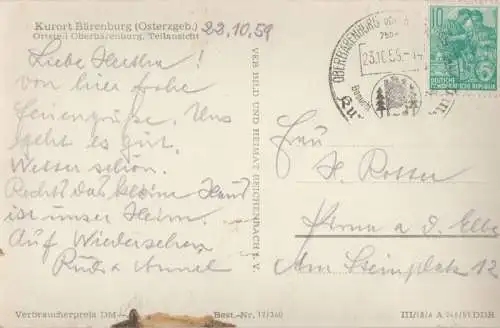 Kurort Bärenburg (Osterzgeb.) 22.10.59
Ortsteil Oberbärenburg, Teilansicht
Liebe Hertha!
von hier frohe
Feriengrüße. Uns
geht es gut.
Wetter schön.
Rechts das kleine Haus
ist unser Heim.
Auf Wiedersehen
Ruth + Annel
VER BILD UND HEIMAT REICHENBACH I. V.
OBERBÄRENBURG
10
DEUTSCHE
DEMOKRATISCHE REPUBLIK
Frau
H. Rotter
Pirna a. d. Elbe
Am Steinplatz 12
Verbraucherpreis DM
Best.-Nr. 12/340
III/18/6 A DDR